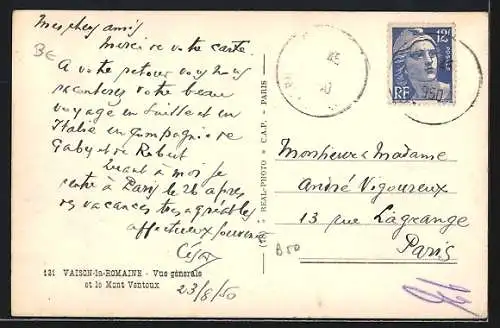 Mes chers amis
Merci de votre carte.
A votre retour vous nous
raconterez votre beau
voyage en Suisse et en
Italie en compagnie de
Gaby et de Robert
Quant à moi je
rentre à Paris le 26 après
des vacances très agréables
affectueux souvenirs
César
23/8/50
131 VAISON-la-ROMAINE - Vue générale
et le Mont Ventoux
REAL-PHOTO - C.A.P. - PARIS
12F
POSTES
RF
950
45
Monsieur & Madame
André Vigoureux
13 rue Lagrange
Paris
B50
BE